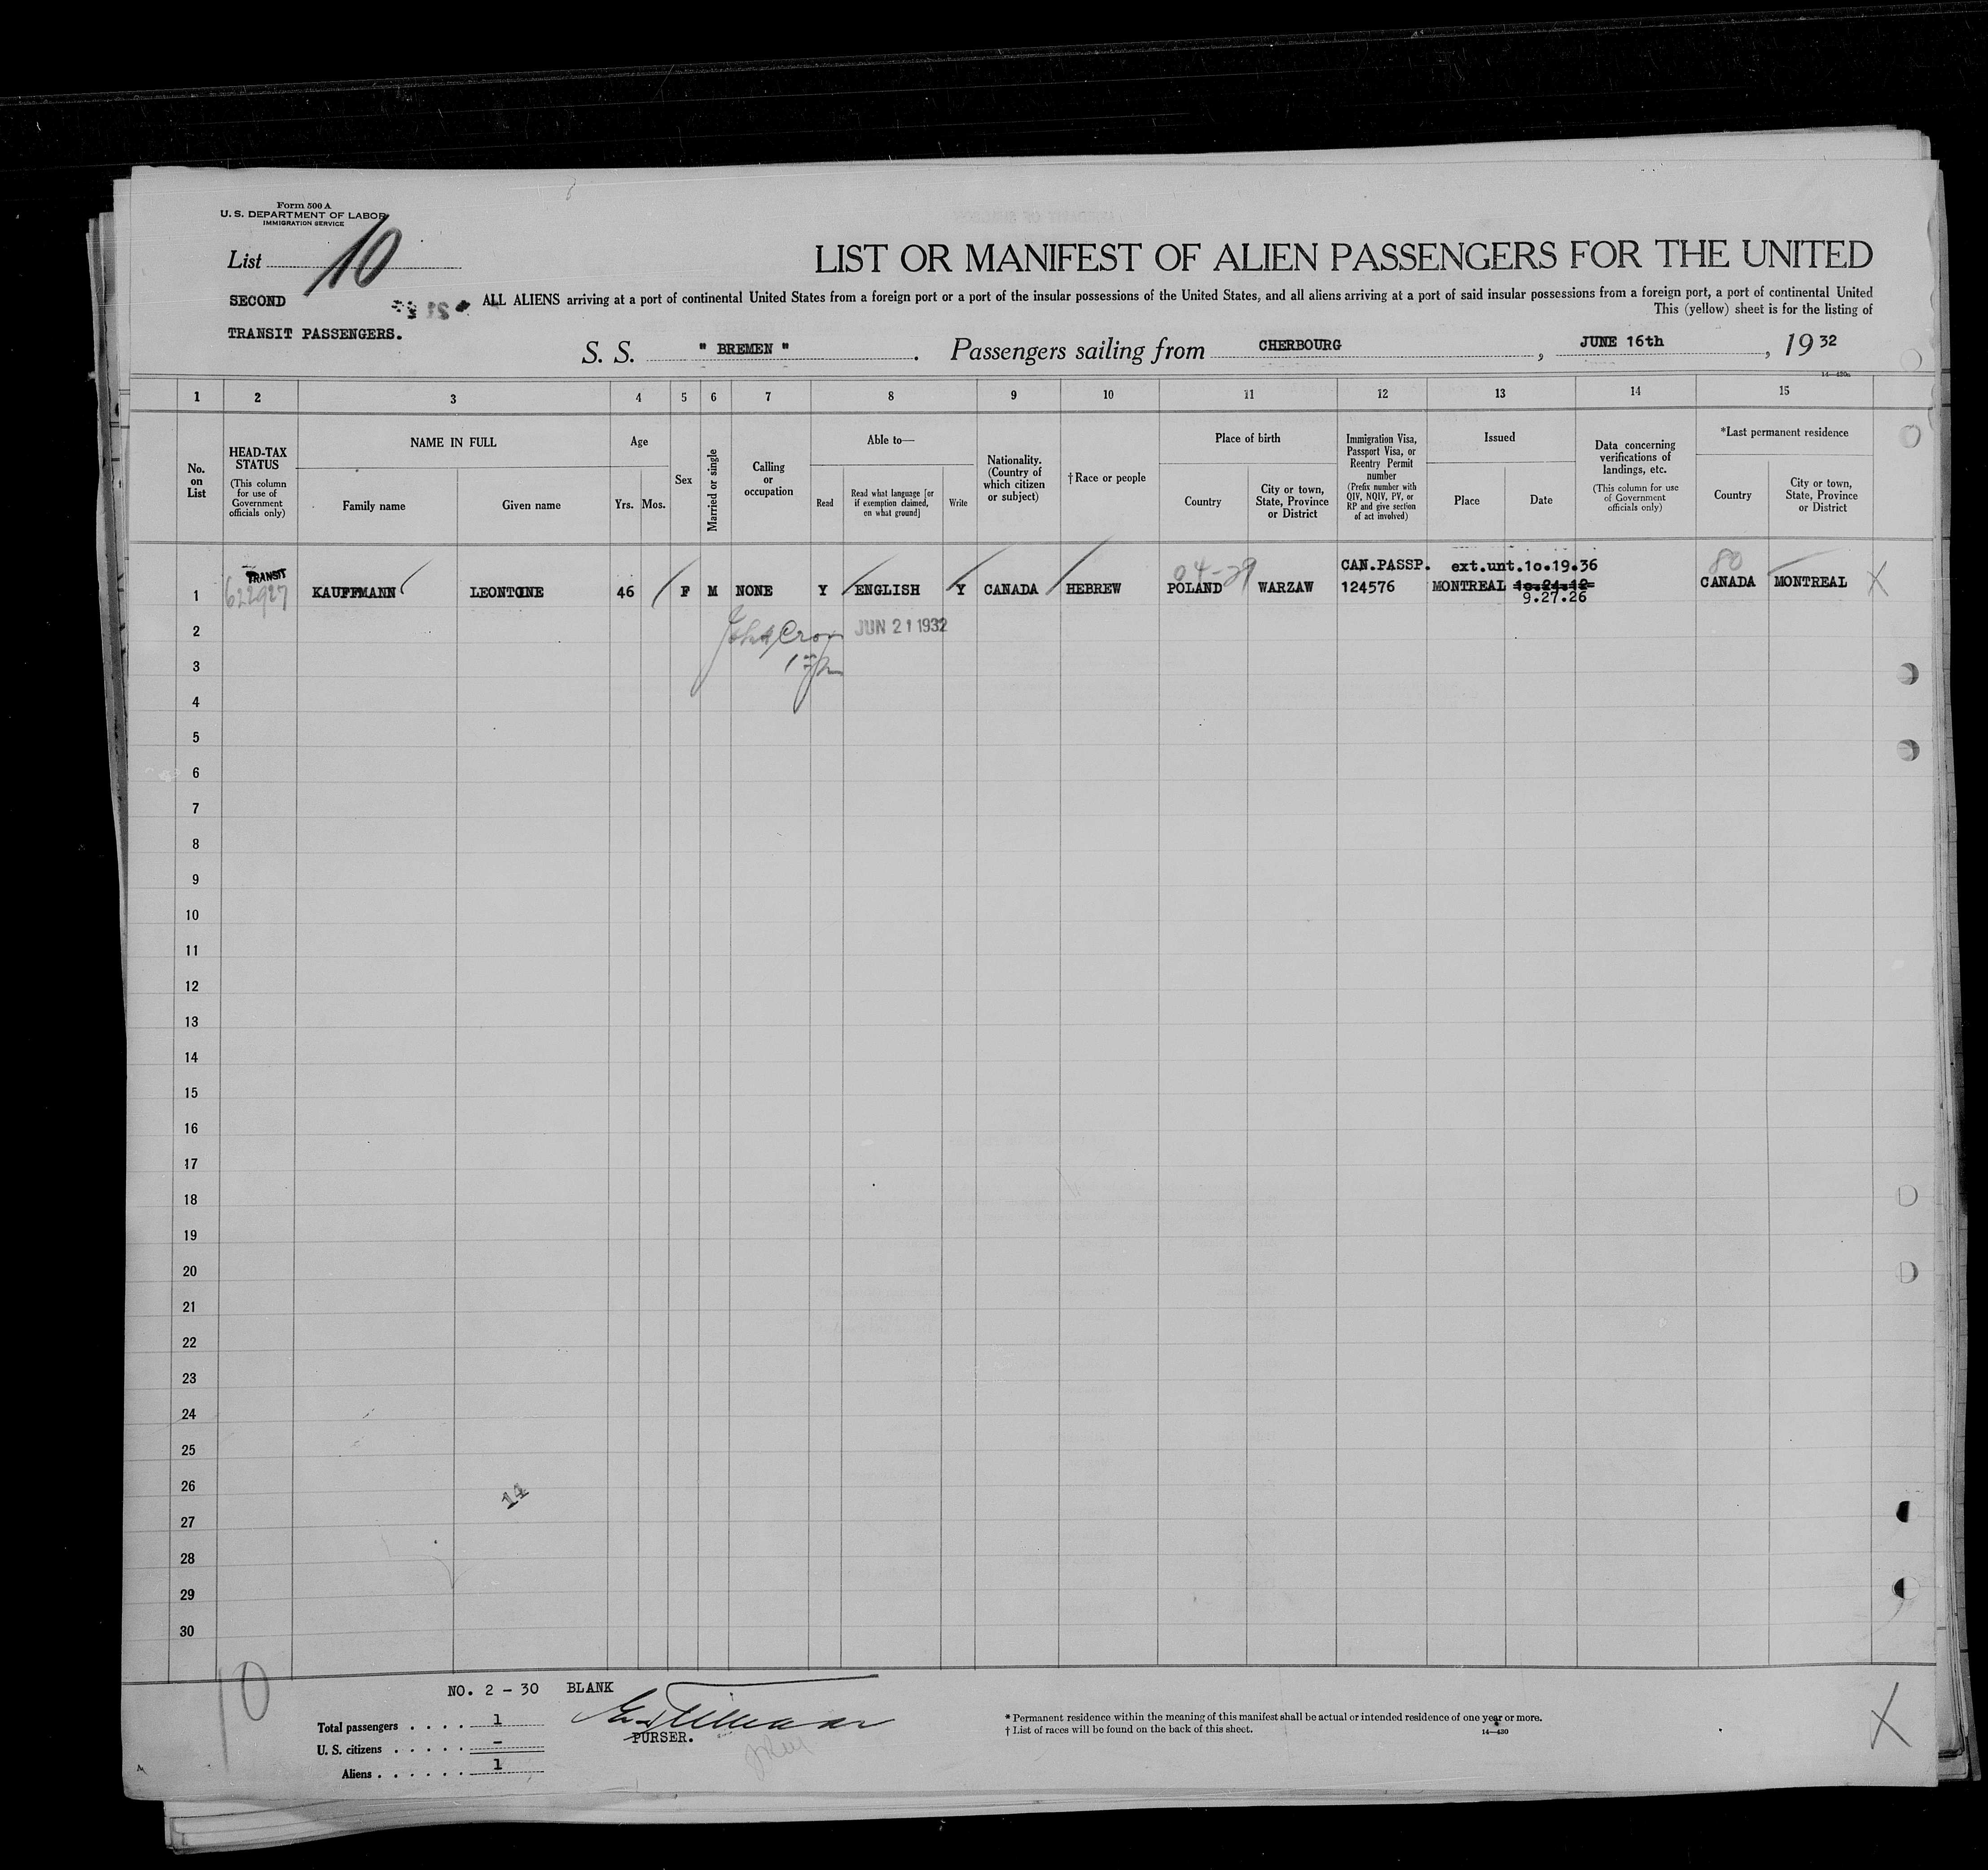 Form 500 A
U. S. DEPARTMENT OF LABOR
IMMIGRATION SERVICE
List 10
LIST OR MANIFEST OF ALIEN PASSENGERS FOR THE UNITED
SECOND
ALL ALIENS arriving at a port of continental United States from a foreign port or a port of the insular possessions of the United States, and all aliens arriving at a port of said insular possessions from a foreign port, a port of continental United
This (yellow) sheet is for the listing of
TRANSIT PASSENGERS.
S. S. " BREMEN ". Passengers sailing from CHERBOURG, JUNE 16th, 19 32
14—430a
1 2 3 4 5 6 7 8 9 10 11 12 13 14 15
No. on List
HEAD-TAX STATUS
(This column for use of Government officials only)
NAME IN FULL
Family name
Given name
Age
Yrs.
Mos.
Sex
Married or single
Calling or occupation
Able to—
Read
Read what language [or if exemption claimed, on what ground]
Write
Nationality. (Country of which citizen or subject)
† Race or people
Place of birth
Country
City or town, State, Province or District
Immigration Visa, Passport Visa, or Reentry Permit number
(Prefix number with QIV, NQIV, PV, or RP and give section of act involved)
Issued
Place
Date
Data concerning verifications of landings, etc.
(This column for use of Government officials only)
*Last permanent residence
Country
City or town, State, Province or District
TRANSIT 04-29 CAN.PASSP. ext.unt.10.19.36 80
1 622927 KAUFFMANN LEONTOINE 46 F M NONE Y ENGLISH Y CANADA HEBREW POLAND WARZAW 124576 MONTREAL CANADA MONTREAL X
9.27.26
2 JUN 21 1932
3
4
5
6
7
8
9
10
11
12
13
14
15
16
17
18
19
20
21
22
23
24
25
26
14
27
28
29
30
10
NO. 2 - 30 BLANK
Total passengers . . . . 1
U. S. citizens . . . . . -
Aliens . . . . . . 1
PURSER.
* Permanent residence within the meaning of this manifest shall be actual or intended residence of one year or more.
† List of races will be found on the back of this sheet.
14—430
X